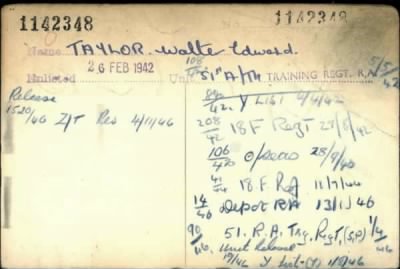 1142348 1142348
Name TAYLOR. Walter Edward.
Enlisted 26 FEB 1942 Unit 51st A/Tk TRAINING REGT. R.A. 5/5/42
Release
1520/46 Z/T Res 4/11/46
42 Y LIST 4/4/42
208/42 18 F Regt 27/8/42
106/42 O/seas 28/9/42
18 F. Reg 11/7/44
14/46 Depot RA 13/1/46
90/46 51. R.A. Trg. Regt. (S.P.) 1/4/46
Unit Release
19/46 Y List-(Y) 1/8/46